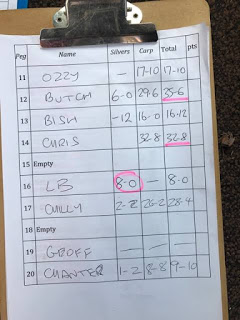 Peg Name Silvers Carp Total pts
11 OZZY — 17-10 17-10
12 BUTCH 6-0 29-6 35-6
13 BISH -12 16-0 16-12
14 CHRIS 32-8 32-8
15 Empty
16 LB 8-0 — 8-0
17 QUILLY 2-2 26-2 28-4
18 Empty
19 GEOFF — — —
20 CHANTER 1-2 8-8 9-10